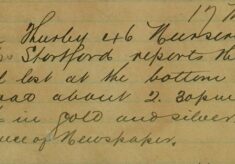 17 
Thurley 46 Nurser
Stortford reports the
lost at the bottom
about 2.30pm
in Gold and silver
of Newspaper.